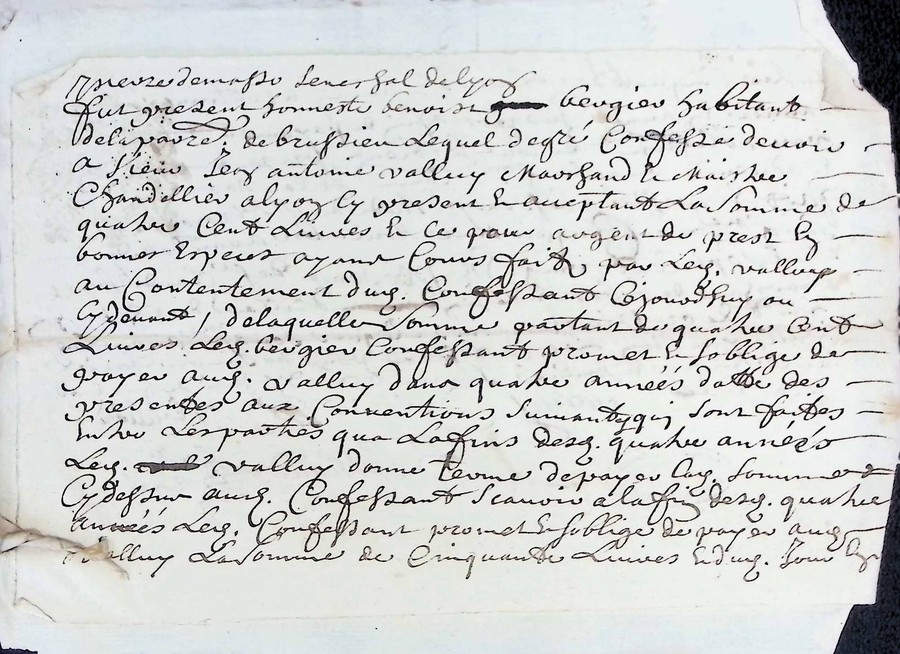 demasso Seneschal de lyon
fut present honneste benoist bergier habitant
de la parre. de brussieu Lequel de gré Confesse devoir
a sieur Jean antoine valluy Marchand & Maistre
Chandellier a lyon Cy present & acceptant La Somme de
quatre Cent Livres & ce pour argent de prest En
bonnes Especes ayant Cours fait par Led. valluy
au Contentement dud. Confessant Cejourdhuy ou
Cy devant, de laquelle Somme partant de quatre Cent
Livres Led. bergier Confessant promet & soblige de
payer aud. valluy dans quatre années datte des
presentes aux Conventions suivantes qui sont faites
Entre Les parties qua La fin desd. quatre années
Led. valluy donne terme de payer lad. somme
Cy dessus aud. Confessant scavoir a la fin desd. quatre
années Led. Confessant promet & soblige de payer aud.
valluy La somme de Cinquante Livres & dud. Jour En